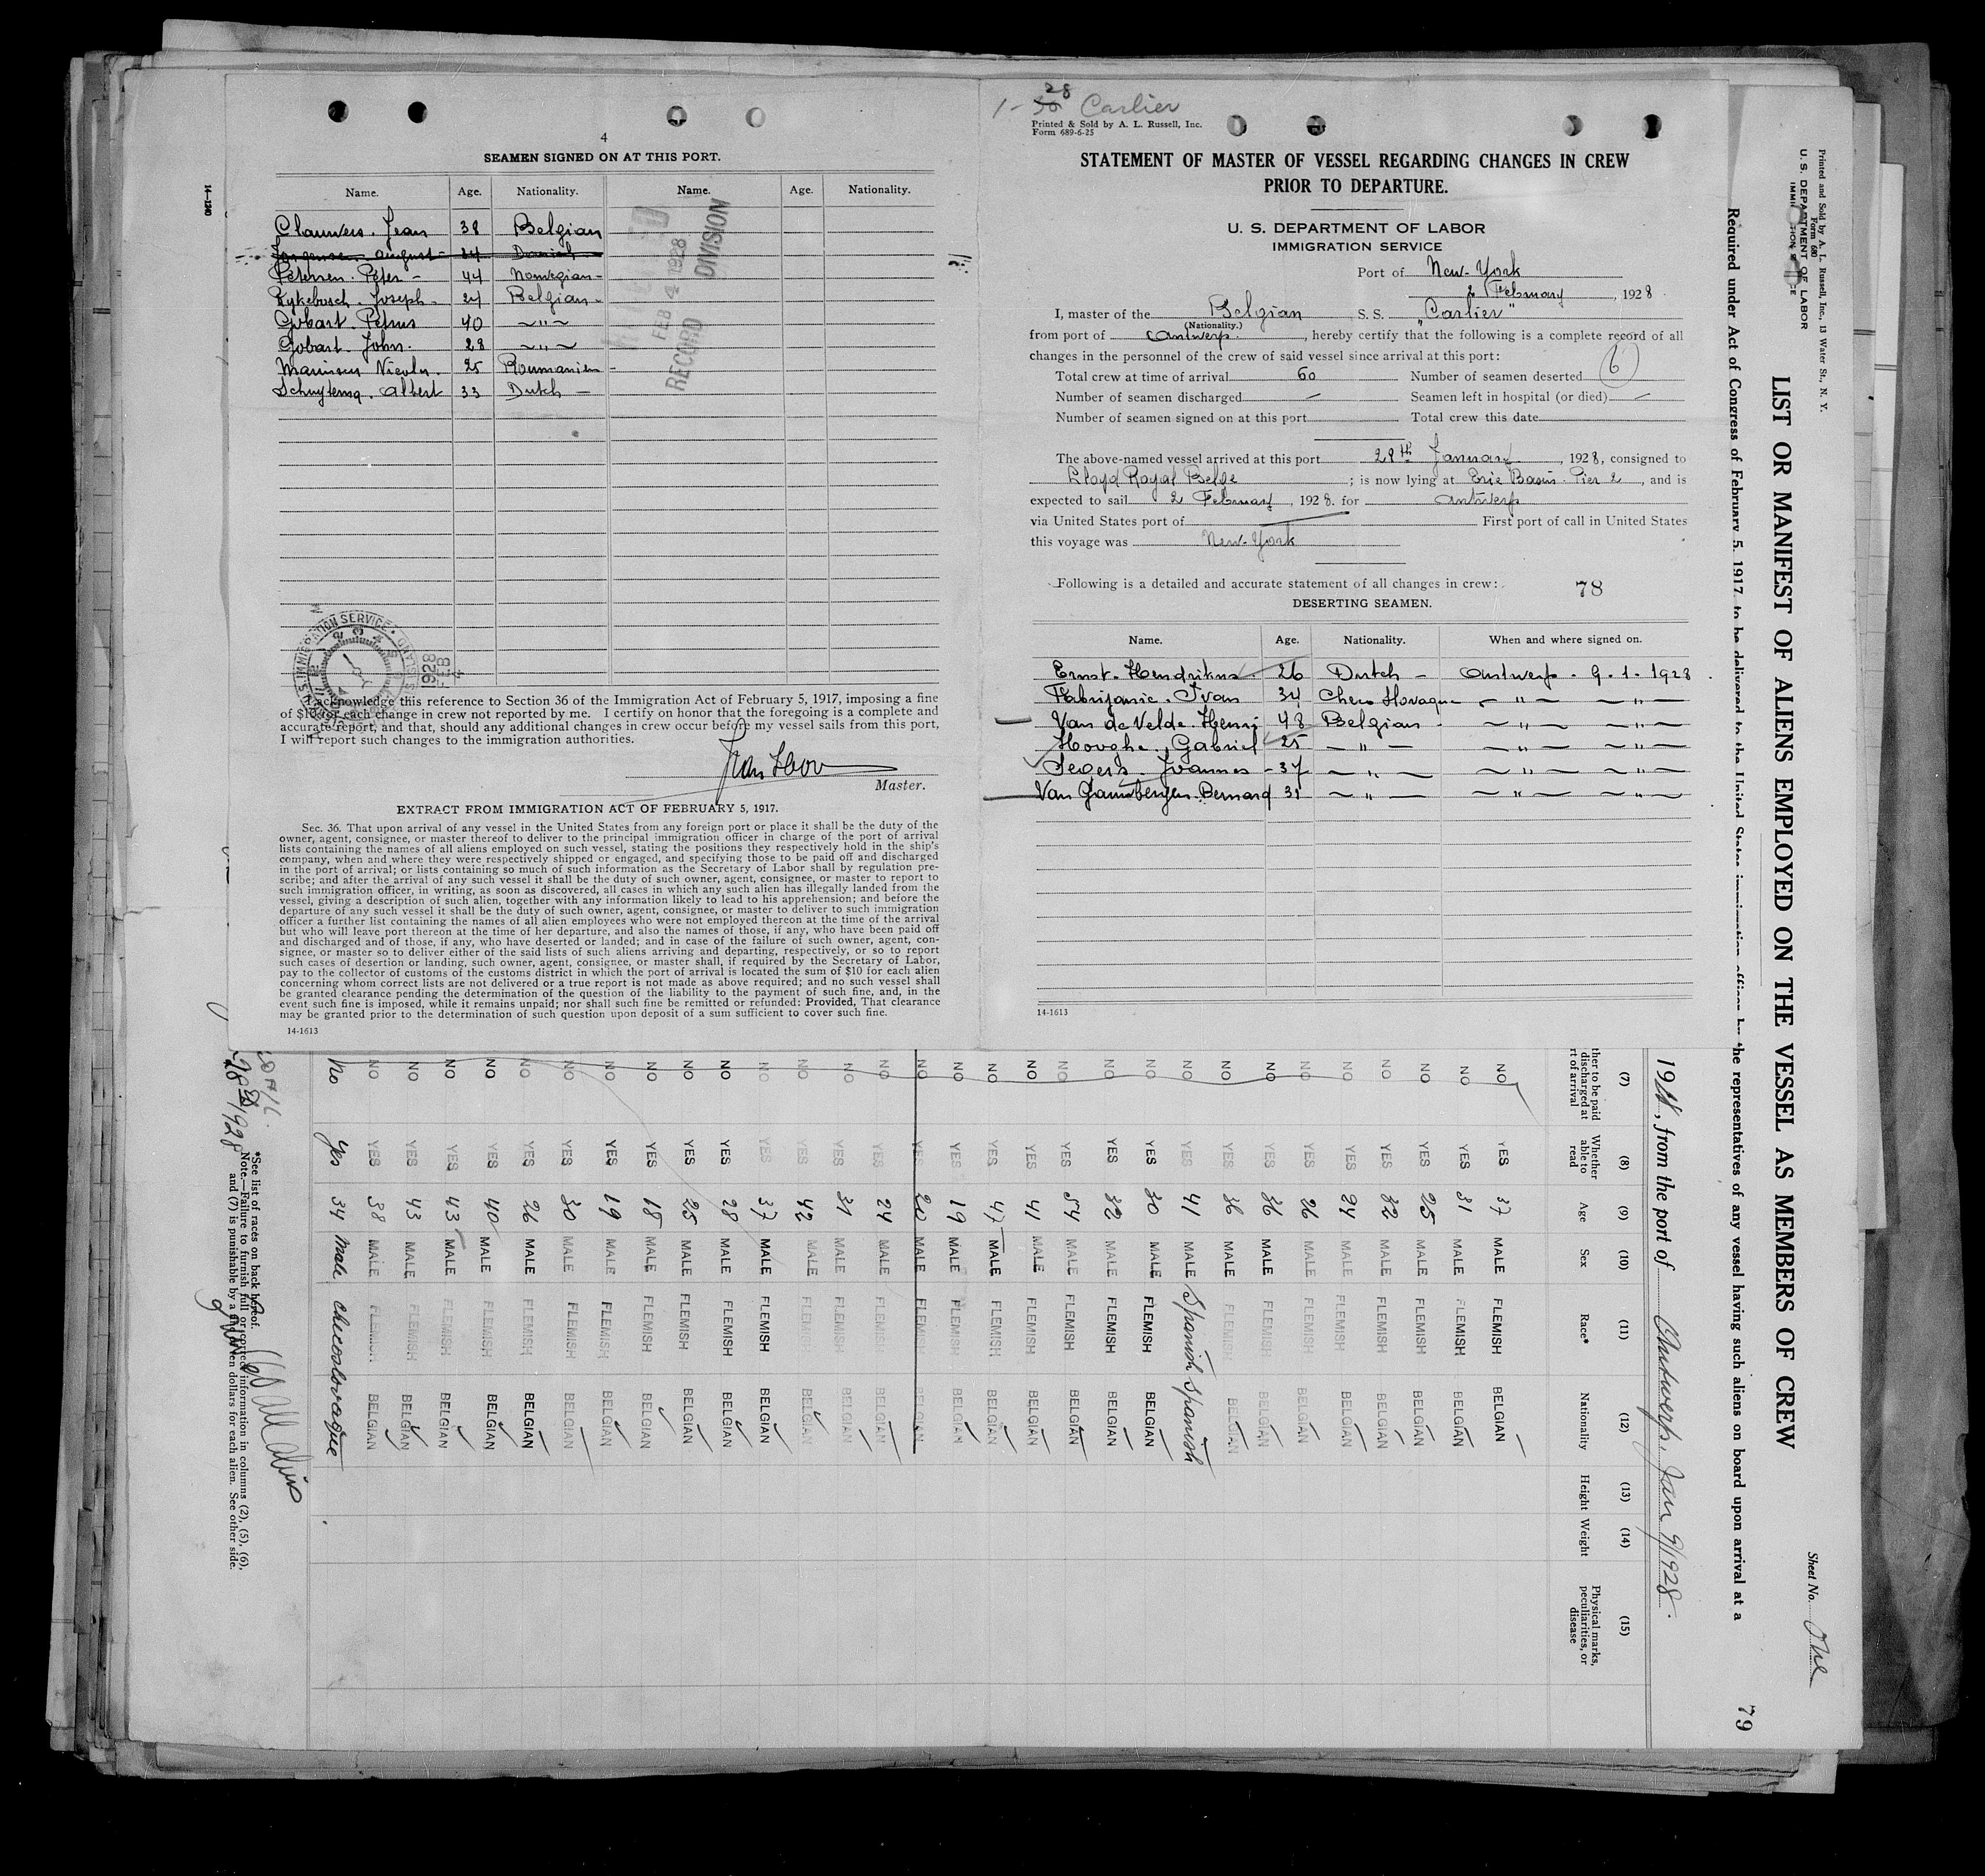 4
SEAMEN SIGNED ON AT THIS PORT.
Name. Age. Nationality. Name. Age. Nationality.
Clauwers. Jean 38 Belgian
august 24 Danish
Petersen. Peter - 44 Norwegian -
Rykebosch. Joseph - 24 Belgian -
Gobart. Petrus 40 - " -
Gobart. John. 28 - " -
Nicolas. 25 Roumanien -
Albert 33 Dutch -
FEB 4 1928
RECORD DIVISION
1928
FEB
4
I acknowledge this reference to Section 36 of the Immigration Act of February 5, 1917, imposing a fine
of $10 for each change in crew not reported by me. I certify on honor that the foregoing is a complete and
accurate report, and that, should any additional changes in crew occur before my vessel sails from this port,
I will report such changes to the immigration authorities.
Master.
EXTRACT FROM IMMIGRATION ACT OF FEBRUARY 5, 1917.
Sec. 36. That upon arrival of any vessel in the United States from any foreign port or place it shall be the duty of the
owner, agent, consignee, or master thereof to deliver to the principal immigration officer in charge of the port of arrival
lists containing the names of all aliens employed on such vessel, stating the positions they respectively hold in the ship's
company, when and where they were respectively shipped or engaged, and specifying those to be paid off and discharged
in the port of arrival; or lists containing so much of such information as the Secretary of Labor shall by regulation pre-
scribe; and after the arrival of any such vessel it shall be the duty of such owner, agent, consignee, or master to report to
such immigration officer, in writing, as soon as discovered, all cases in which any such alien has illegally landed from the
vessel, giving a description of such alien, together with any information likely to lead to his apprehension; and before the
departure of any such vessel it shall be the duty of such owner, agent, consignee, or master to deliver to such immigration
officer a further list containing the names of all alien employees who were not employed thereon at the time of the arrival
but who will leave port thereon at the time of her departure, and also the names of those, if any, who have been paid off
and discharged and of those, if any, who have deserted or landed; and in case of the failure of such owner, agent, con-
signee, or master so to deliver either of the said lists of such aliens arriving and departing, respectively, or so to report
such cases of desertion or landing, such owner, agent, consignee, or master shall, if required by the Secretary of Labor,
pay to the collector of customs of the customs district in which the port of arrival is located the sum of $10 for each alien
concerning whom correct lists are not delivered or a true report is not made as above required; and no such vessel shall
be granted clearance pending the determination of the question of the liability to the payment of such fine, and, in the
event such fine is imposed, while it remains unpaid; nor shall such fine be remitted or refunded: Provided, That clearance
may be granted prior to the determination of such question upon deposit of a sum sufficient to cover such fine.
14-1613
28
1-36 Carlier
Printed & Sold by A. L. Russell, Inc.
Form 689-6-25
STATEMENT OF MASTER OF VESSEL REGARDING CHANGES IN CREW
PRIOR TO DEPARTURE.
U. S. DEPARTMENT OF LABOR
IMMIGRATION SERVICE
Port of New-York
2 February, 1928
I, master of the Belgian S. S. "Carlier"
(Nationality.)
from port of Antwerp., hereby certify that the following is a complete record of all
changes in the personnel of the crew of said vessel since arrival at this port:
Total crew at time of arrival 60 Number of seamen deserted 6
Number of seamen discharged - Seamen left in hospital (or died) -
Number of seamen signed on at this port Total crew this date
The above-named vessel arrived at this port 28th January, 1928, consigned to
Lloyd Royal Belge; is now lying at Erie Basin. Pier 2, and is
expected to sail 2 February, 1928. for Antwerp
via United States port of First port of call in United States
this voyage was New-York
Following is a detailed and accurate statement of all changes in crew: 78
DESERTING SEAMEN.
Name. Age. Nationality. When and where signed on.
Ernst. Hendrikus 26 Dutch - Antwerp. 9. 1. 1928.
Fabrijansic. Ivan 34 - " - - " -
Van de Velde. Henri 48 Belgian - " - - " -
Hooghe. Gabriel 25 - " - - " - - " -
Segers. Joannes - 37 - " - - " - - " -
Bernard 31 - " - - " - - " -
14-1613
Printed and Sold by A. L. Russell, Inc., 13 Water St., N. Y.
Form 680
U. S. DEPARTMENT OF LABOR
LIST OR MANIFEST OF ALIENS EMPLOYED ON THE VESSEL AS MEMBERS OF CREW
Sheet No. One
79
Required under Act of Congress of February 5, 1917, to be delivered to the United States immigration officer by the representatives of any vessel having such aliens on board upon arrival at a
, from the port of Antwerp, Jan 9/1928.
(7) (8) (9) (10) (11) (12) (13) (14) (15)
ther to be paid discharged at rt of arrival Whether able to read Age Sex Race* Nationality Height Weight Physical marks, peculiarities, or disease
NO YES 37 MALE FLEMISH BELGIAN
NO YES 31 MALE FLEMISH BELGIAN
NO YES 25 MALE FLEMISH BELGIAN
NO YES 32 MALE FLEMISH BELGIAN
NO YES 24 MALE FLEMISH BELGIAN
NO YES 26 MALE FLEMISH BELGIAN
NO YES 36 MALE FLEMISH BELGIAN
NO YES 36 MALE FLEMISH BELGIAN
NO YES 41 MALE Spanish Spanish
NO YES 30 MALE FLEMISH BELGIAN
NO YES 32 MALE FLEMISH BELGIAN
NO YES 54 MALE FLEMISH BELGIAN
NO YES 41 MALE FLEMISH BELGIAN
NO YES 47 MALE FLEMISH BELGIAN
NO YES 19 MALE FLEMISH BELGIAN
NO YES 20 MALE FLEMISH BELGIAN
NO YES 24 MALE FLEMISH BELGIAN
NO YES 31 MALE FLEMISH BELGIAN
NO YES 42 MALE FLEMISH BELGIAN
NO YES 37 MALE FLEMISH BELGIAN
NO YES 28 MALE FLEMISH BELGIAN
NO YES 25 MALE FLEMISH BELGIAN
NO YES 18 MALE FLEMISH BELGIAN
NO YES 19 MALE FLEMISH BELGIAN
NO YES 30 MALE FLEMISH BELGIAN
NO YES 26 MALE FLEMISH BELGIAN
NO YES 40 MALE FLEMISH BELGIAN
NO YES 43 MALE FLEMISH BELGIAN
NO YES 43 MALE FLEMISH BELGIAN
NO YES 38 MALE FLEMISH BELGIAN
No Yes 34 Male Checoslovaque
*See list of races on back hereof.
Note.—Failure to furnish full or correct information in columns (2), (5), (6),
and (7) is punishable by a fine of ten dollars for each alien. See other side.
14-1240